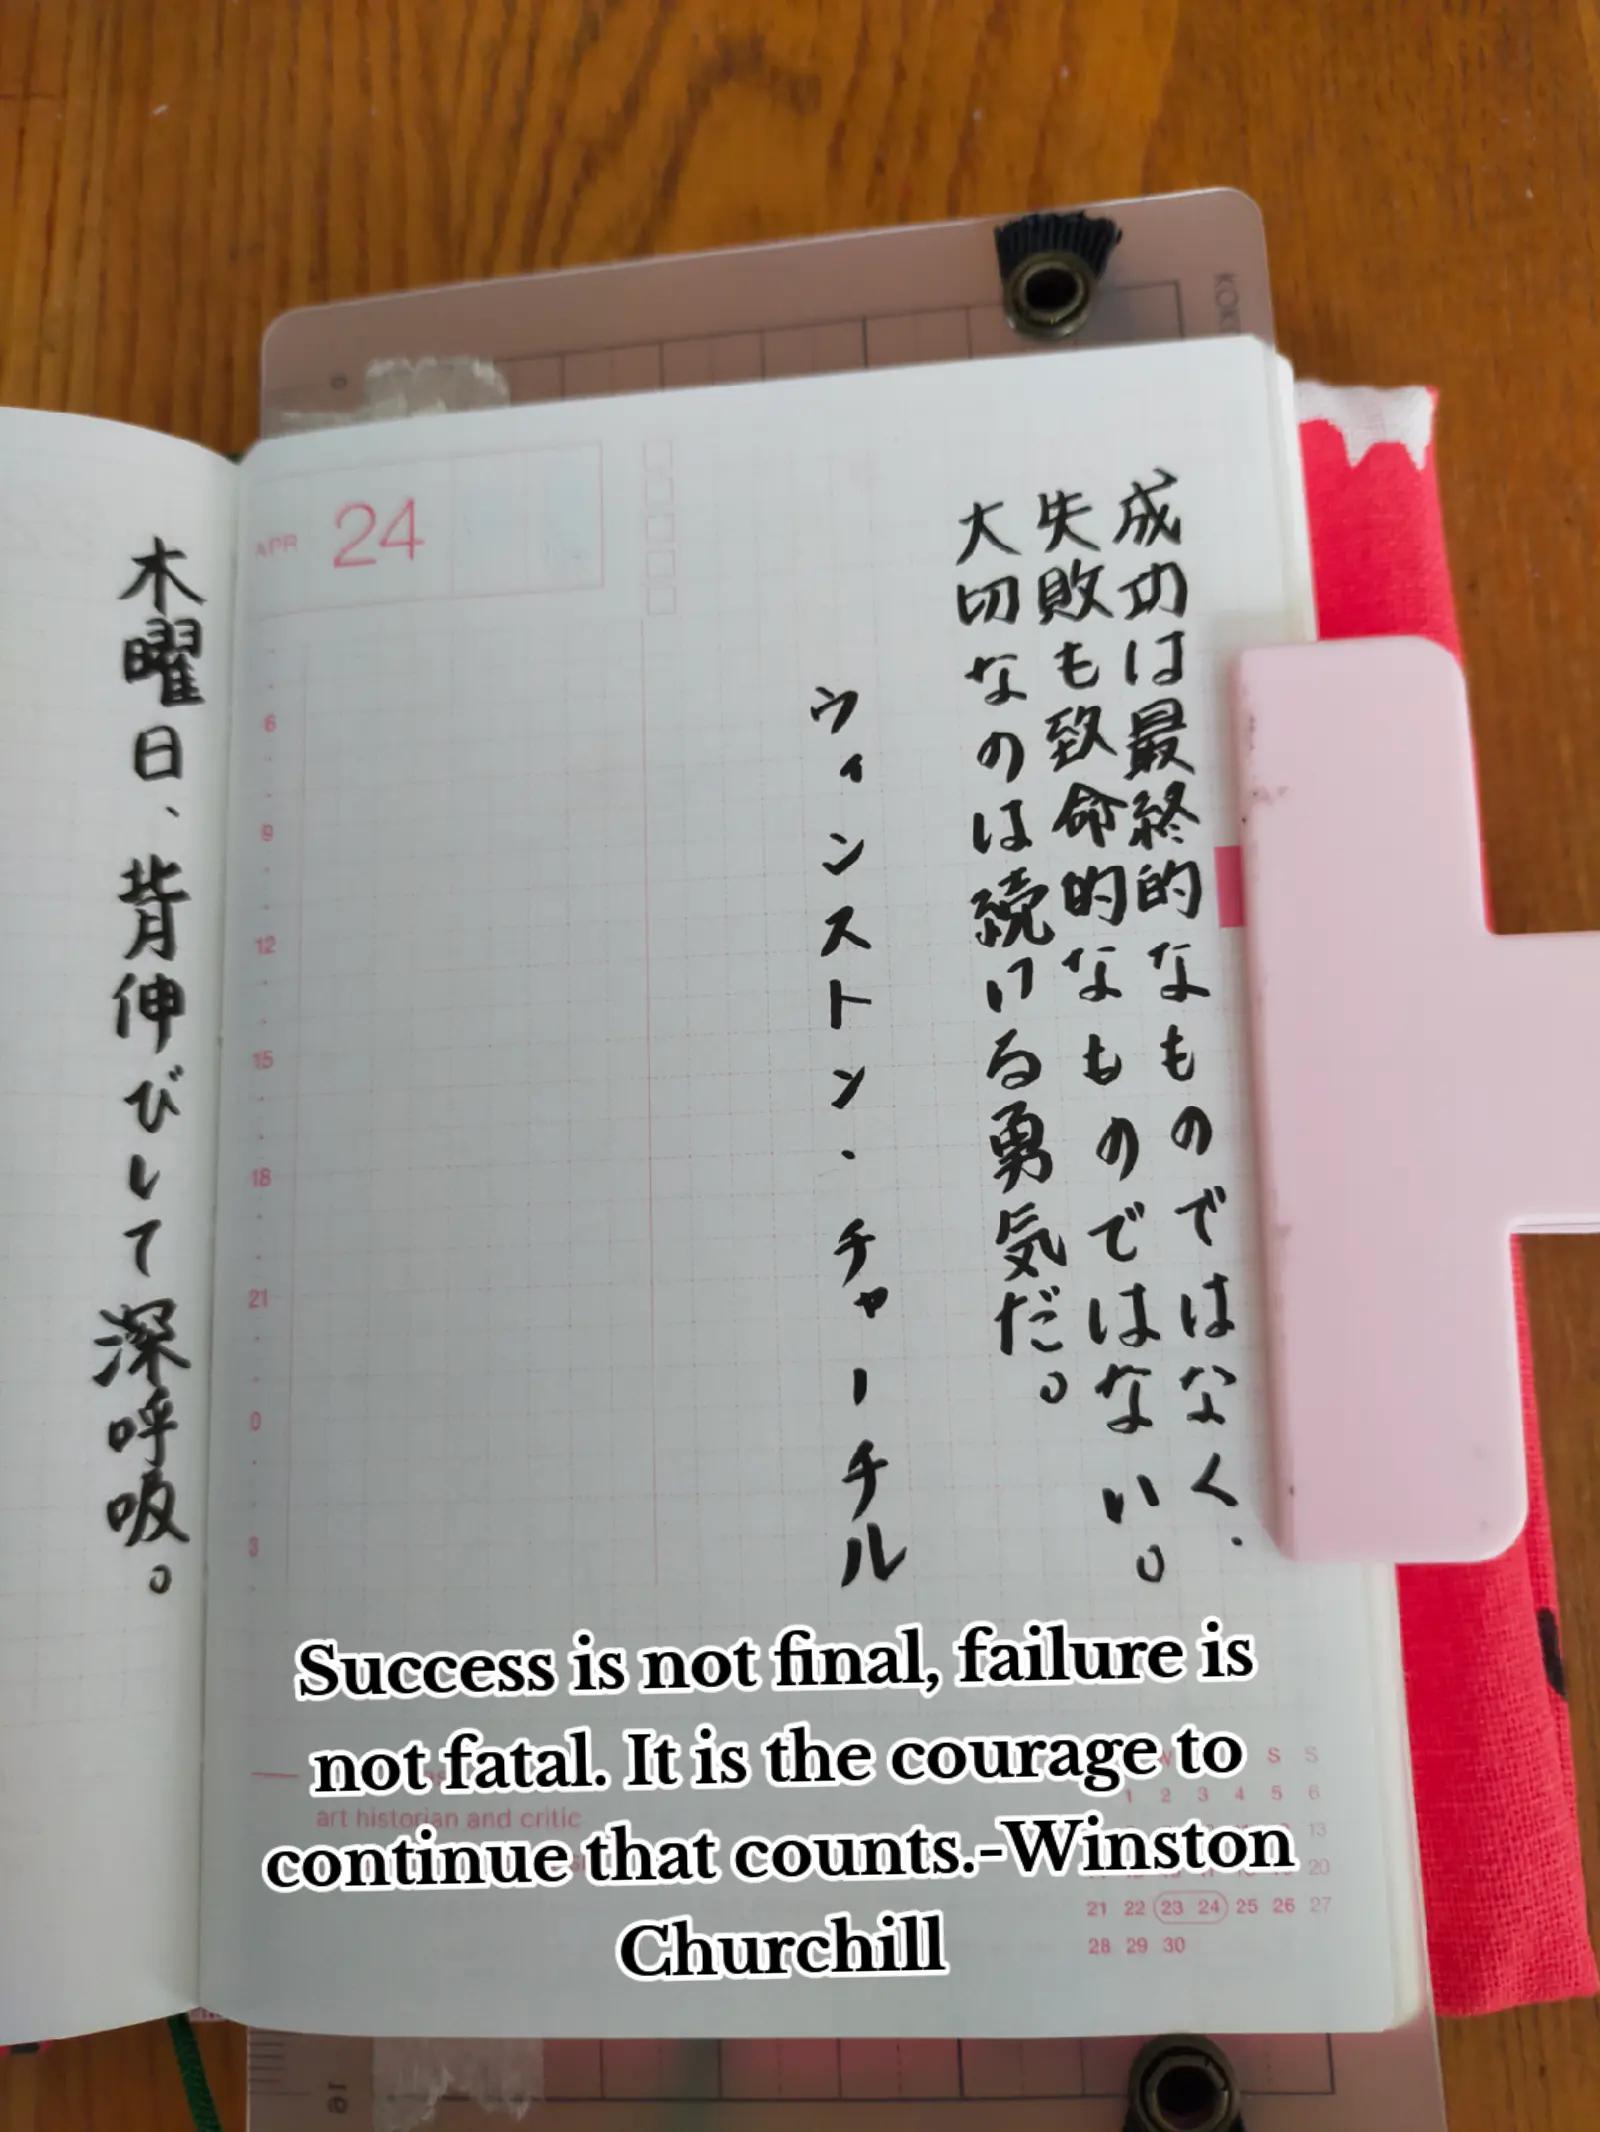 KOK
APR 24
成功は最終的なものではなく、
失敗も致命的なものではない。
大切なのは続ける勇気だ。
ウィンストン・チャーチル
木曜日、背伸びして深呼吸。
6
9
12
15
18
21
0
3
art historian and critic
W S S
1 2 3 4 5 6
13
20
21 22 23 24 25 26 27
28 29 30
Success is not final, failure is
not fatal. It is the courage to
continue that counts.-Winston
Churchill